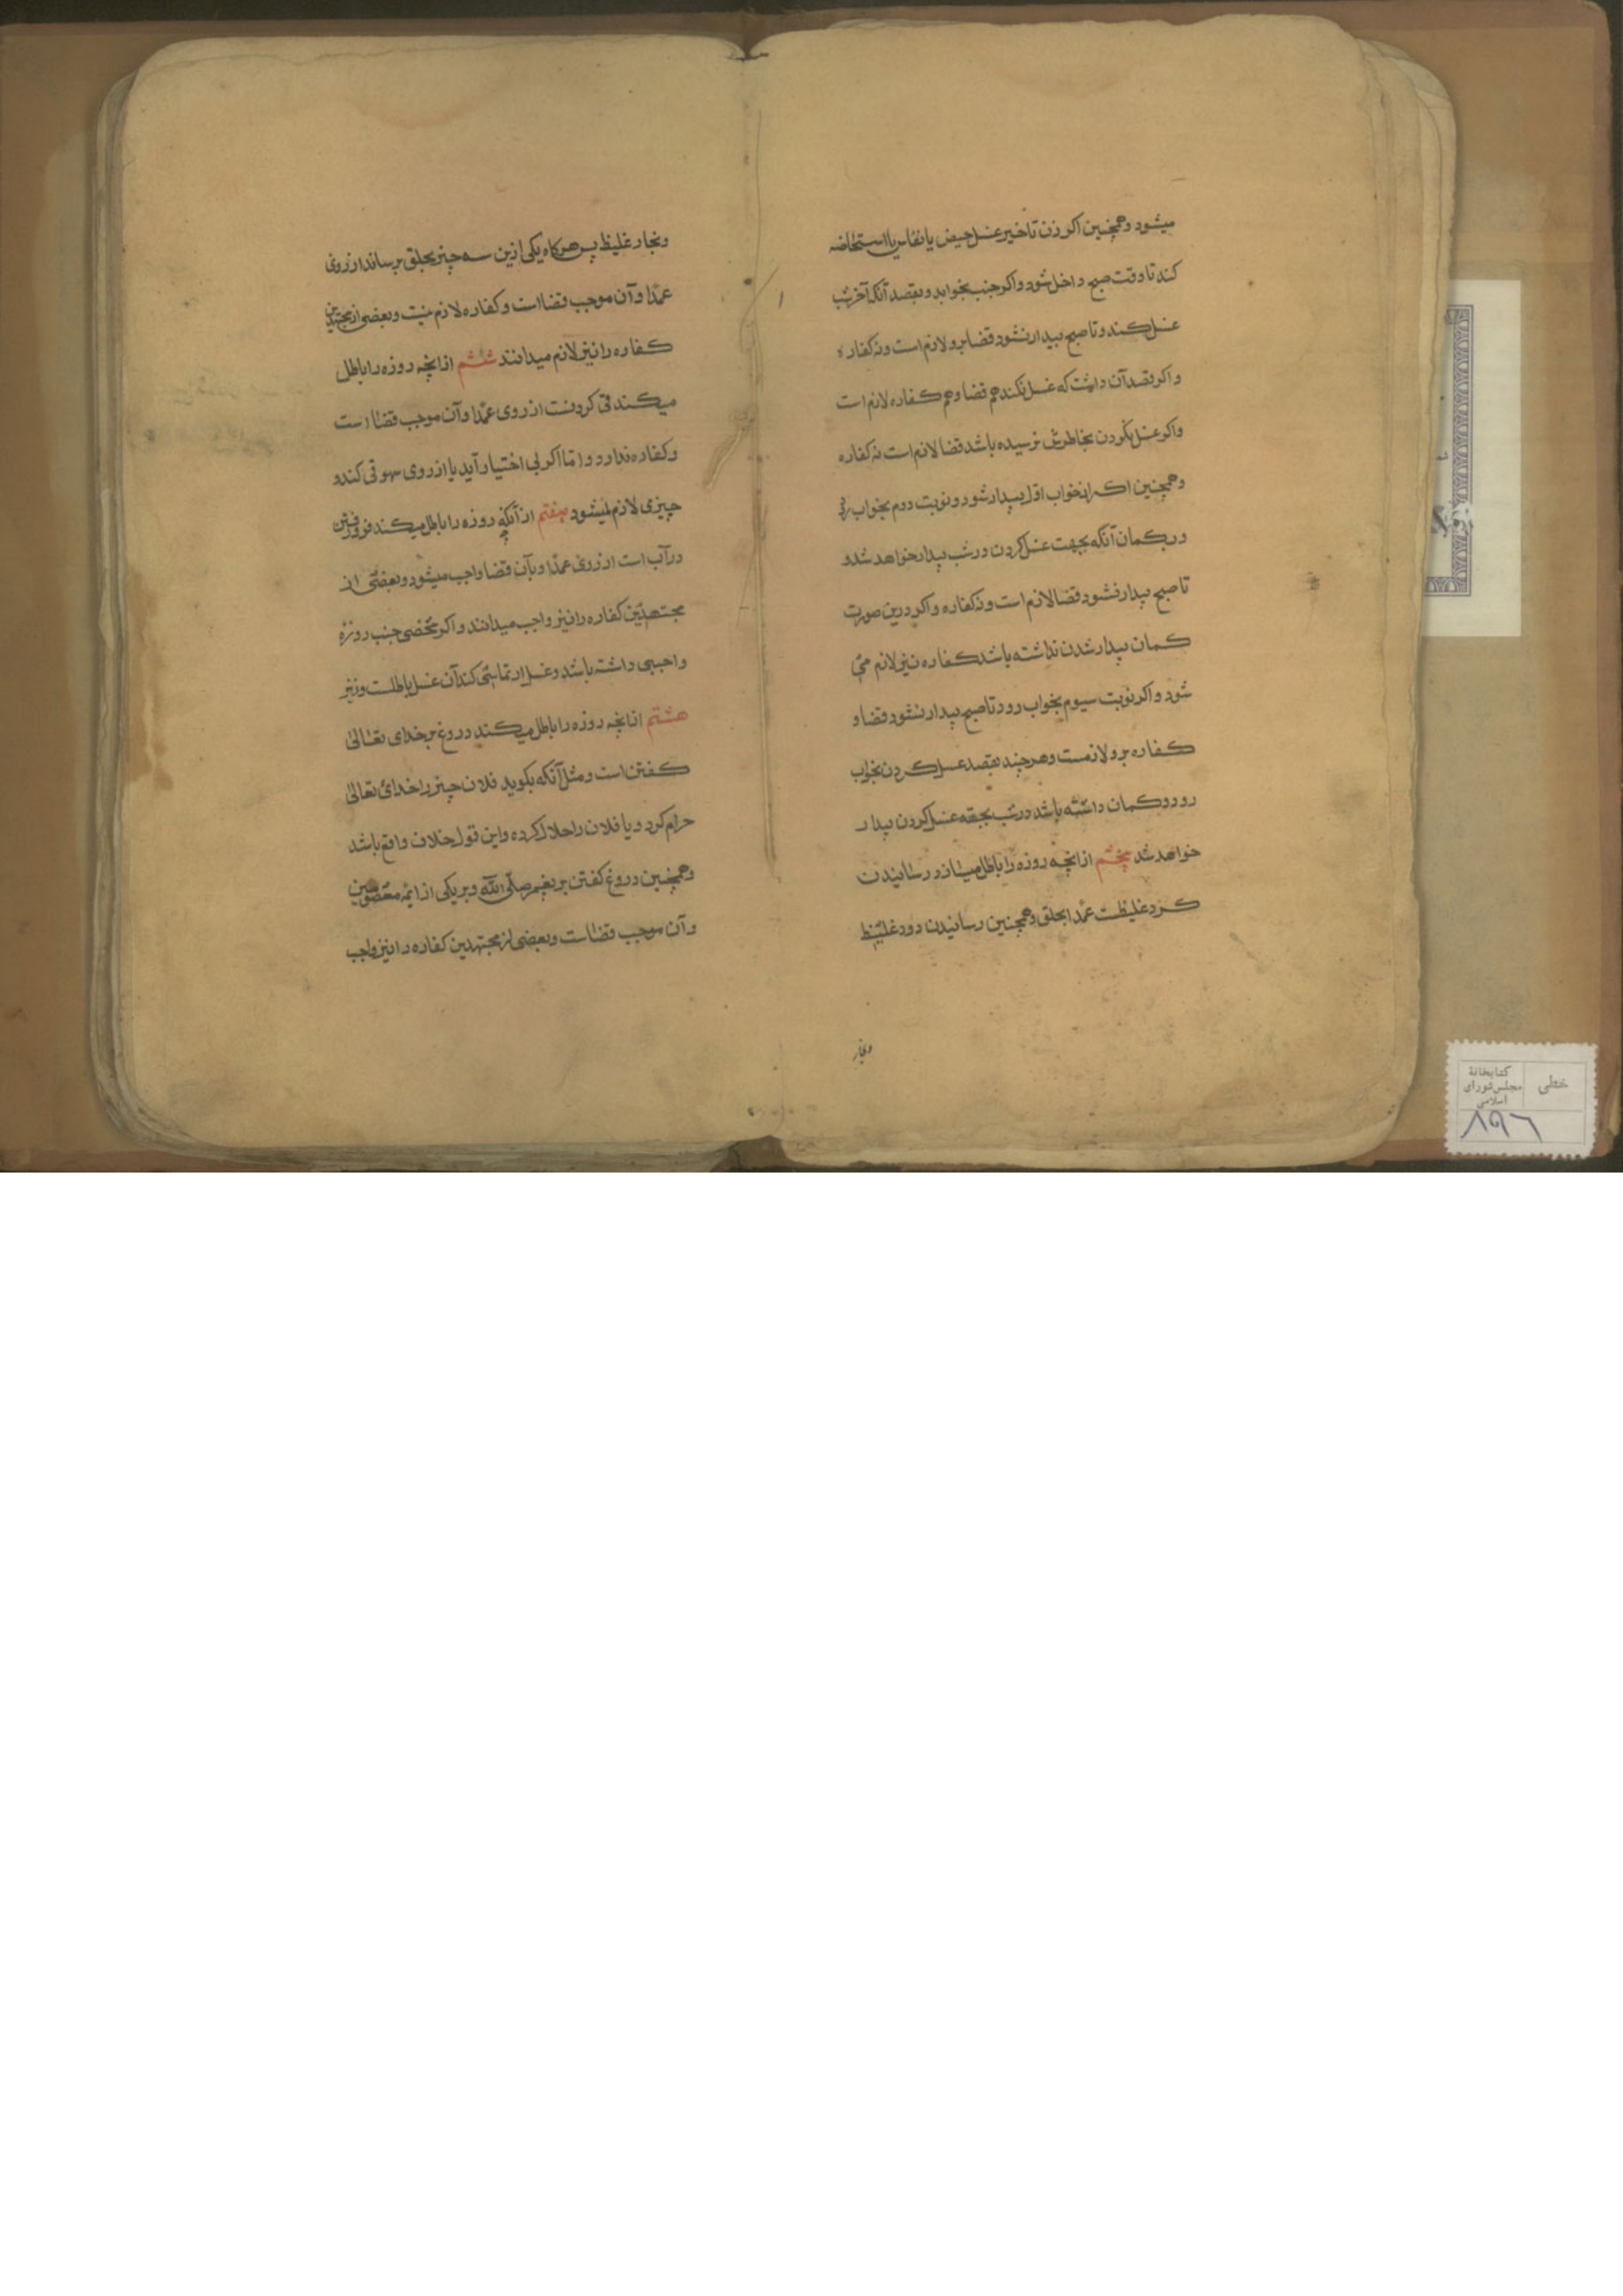 میشود وهمچنین اکر زن تاخیر غسل حیض یا نفاس یا استحاضه
کند تا وقت صبح داخل شود واکر جنب بخوابد وبقصد آنکه آخر شب
غسل کند وتا صبح بیدار نشود قضا برو لازم است ونه کفاره
واکر قصد آن داشت که غسل نکند هم قضا وهم کفاره لازم است
واکر غسل نکردن بخاطرش نرسیده باشد قضا لازم است نه کفاره
وهمچنین اکر از خواب اول بیدار شود ونوبت دوم بخواب رود
ور بکمان آنکه بجهت غسل کردن در شب بیدار خواهد شد و
تا صبح بیدار نشود قضا لازم است ونه کفاره واکر درین صورت
کمان بیدار شدن نداشته باشد کفاره نیز لازم می
شود واکر نوبت سیوم بخواب رود تا صبح بیدار نشود قضا و
کفاره برو لازمست وهر چند بقصد غسل کردن بخواب
رود وکمان داشته باشد در شب بجهة غسل کردن بیدار
خواهد شد پنجم ازانچه روزه را باطل میسازد رسانیدن
کرد غلیظست عمدا بحلق وهمچنین رسانیدن دود غلیظ
وبخار
وبخار غلیظ پس هرکاه یکی ازین سه چیز بحلق برساند از روی
عمدا وآن موجب قضا است وکفاره لازم نیست وبعضی از مجتهدین
کفاره را نیز لازم میدانند ششم ازانچه روزه را باطل
میکند قی کردنست از روی عمدا وآن موجب قضا است
وکفاره ندارد واما اکر بی اختیار آید یا از روی سهو قی کند و
چیزی لازم نمیشود هفتم ازآنچه روزه را باطل میکند فرو رفتن
در آب است از روی عمدا وبآن قضا واجب میشود وبعضی از
مجتهدین کفاره را نیز واجب میدانند واکر شخصی جنب روزهٔ
واجبی داشته باشد وغسل ارتماسی کند آن غسل باطلست ونیز
هشتم ازانچه روزه را باطل میکند دروغ بر خدای تعالی
کفتن است ومثل آنکه بکوید فلان چیز را خدای تعالی
حرام کرد ویا فلان را حلال کرده واین قول خلاف واقع باشد
وهمچنین دروغ کفتن بر پیغمبر صلی الله وبر یکی از ائمه معصومین
وآن موجب قضاست وبعضی از مجتهدین کفاره را نیز واجب
خطی
کتابخانهٔ
مجلس شورای
اسلامی
۸۹۶